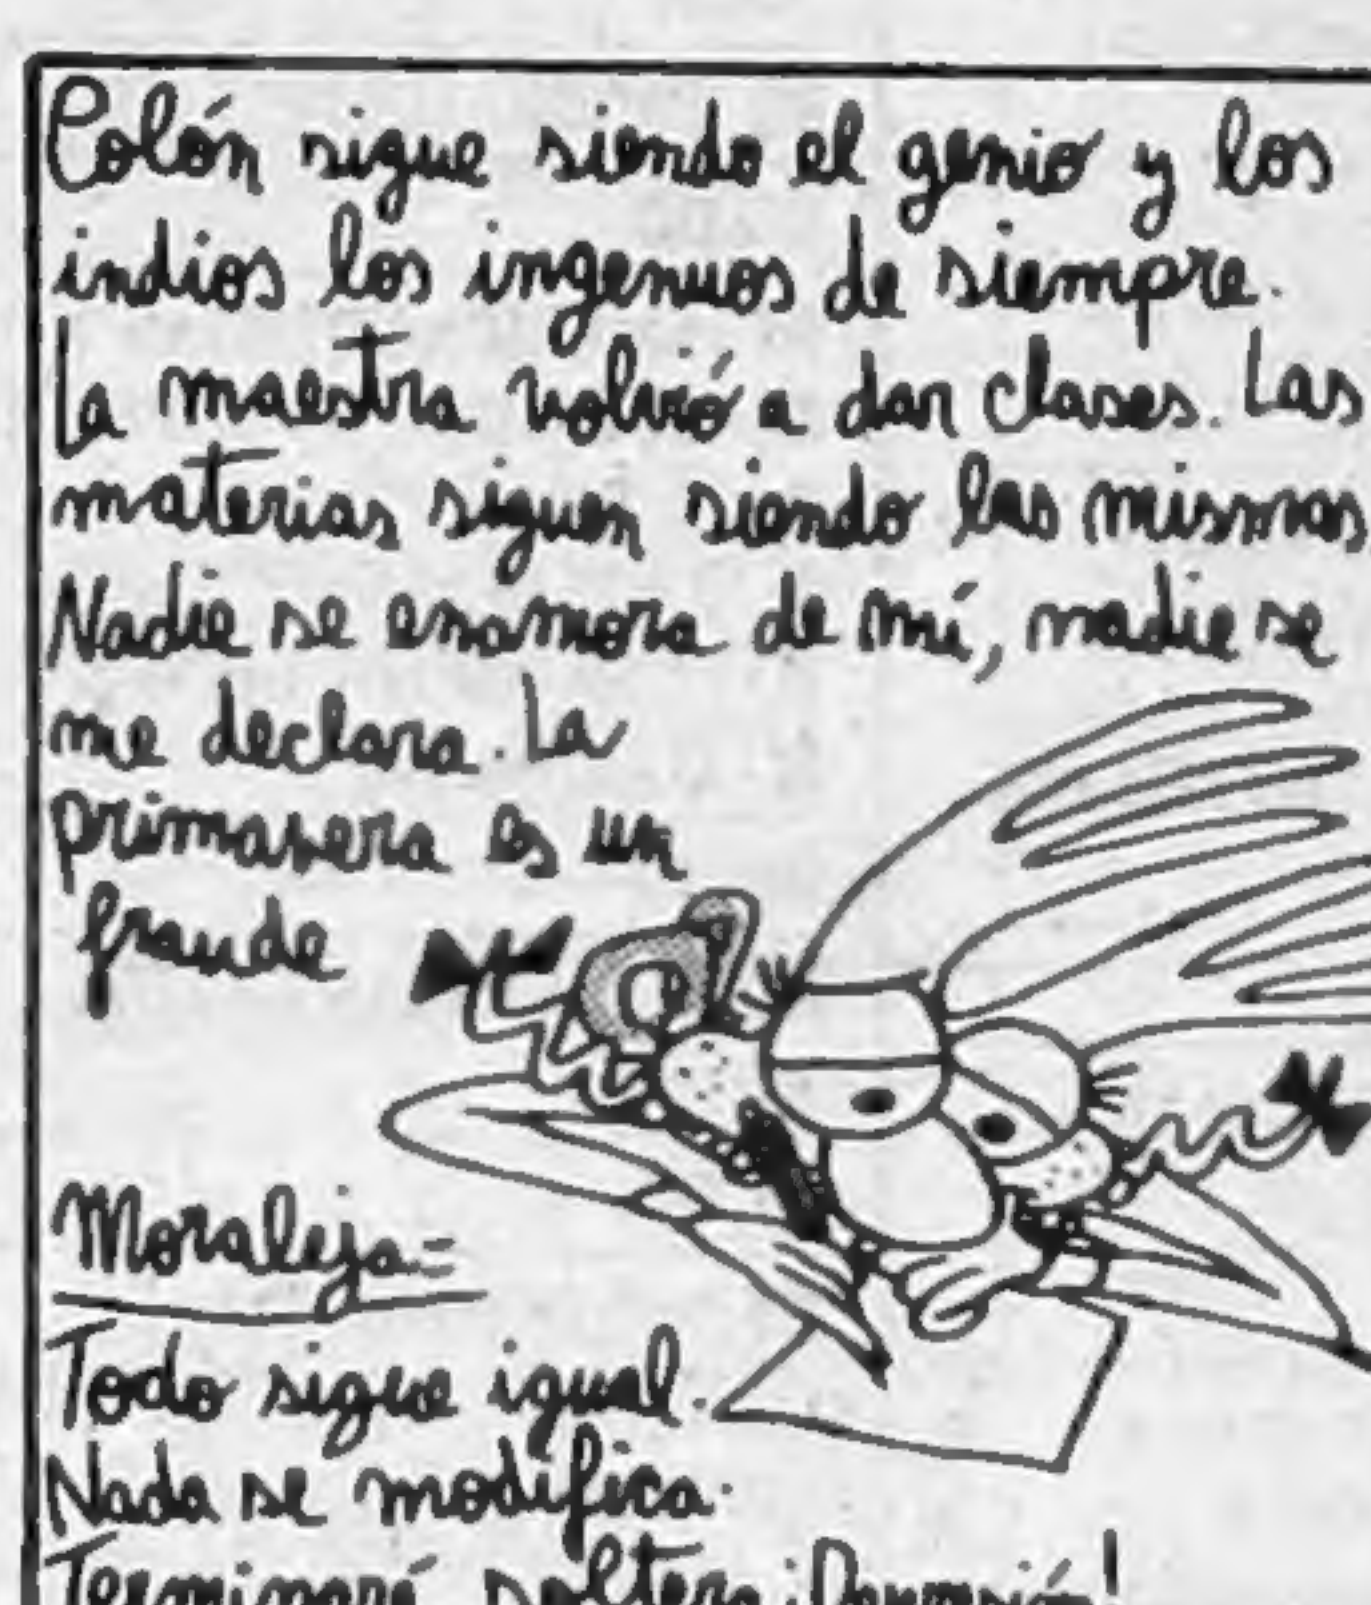 Colón sigue siendo el genio y los
indios los ingenuos de siempre.
La maestra volvió a dar clases. Las
materias siguen siendo las mismas
Nadie se enamora de mí, nadie se
me declara. La
primavera es un
fraude
Moraleja=
Todo sigue igual.
Nada se modifica.
Terminaré soltera ¡Depresión!